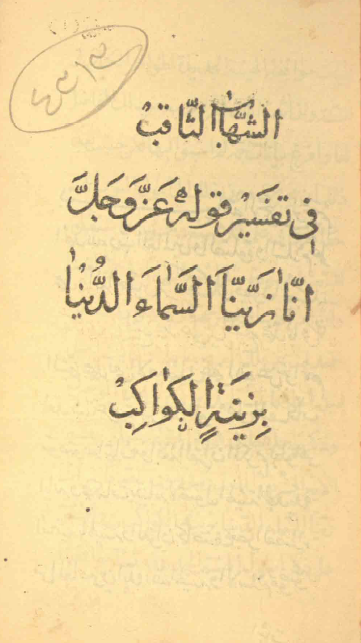 الشهاب الثاقب
في تفسير قوله عز وجل
انا زينا السماء الدنيا
بزينة الكواكب